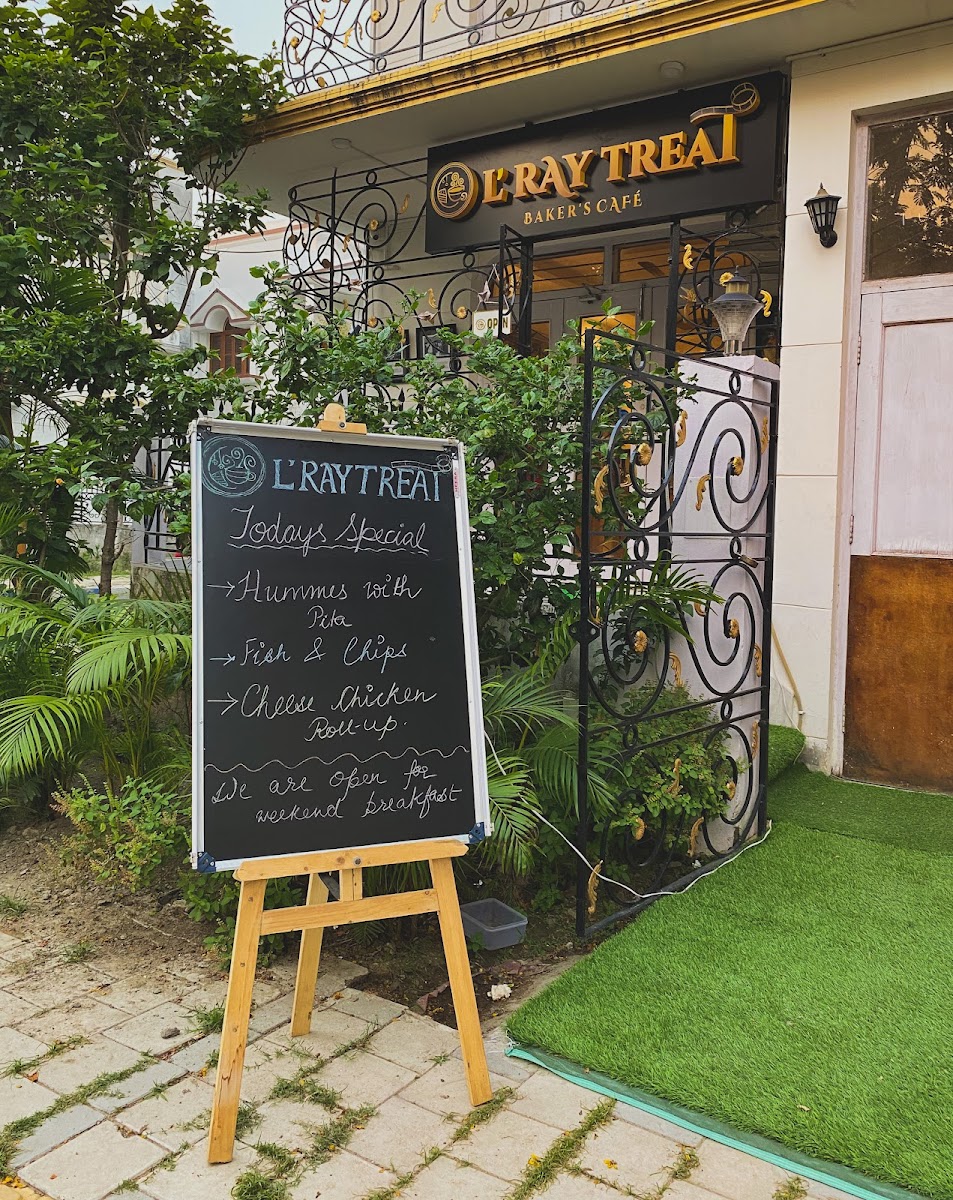 L'RAY TREAT
BAKER'S CAFÉ
OPEN
L'RAYTREAT
Todays Special
→Hummes with
Pita
→Fish & Chips
→Cheese Chicken
Roll-up.
We are open for
weekend breakfast